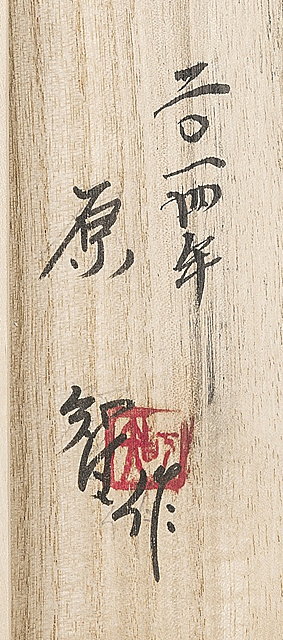 二〇一四年
原 智作